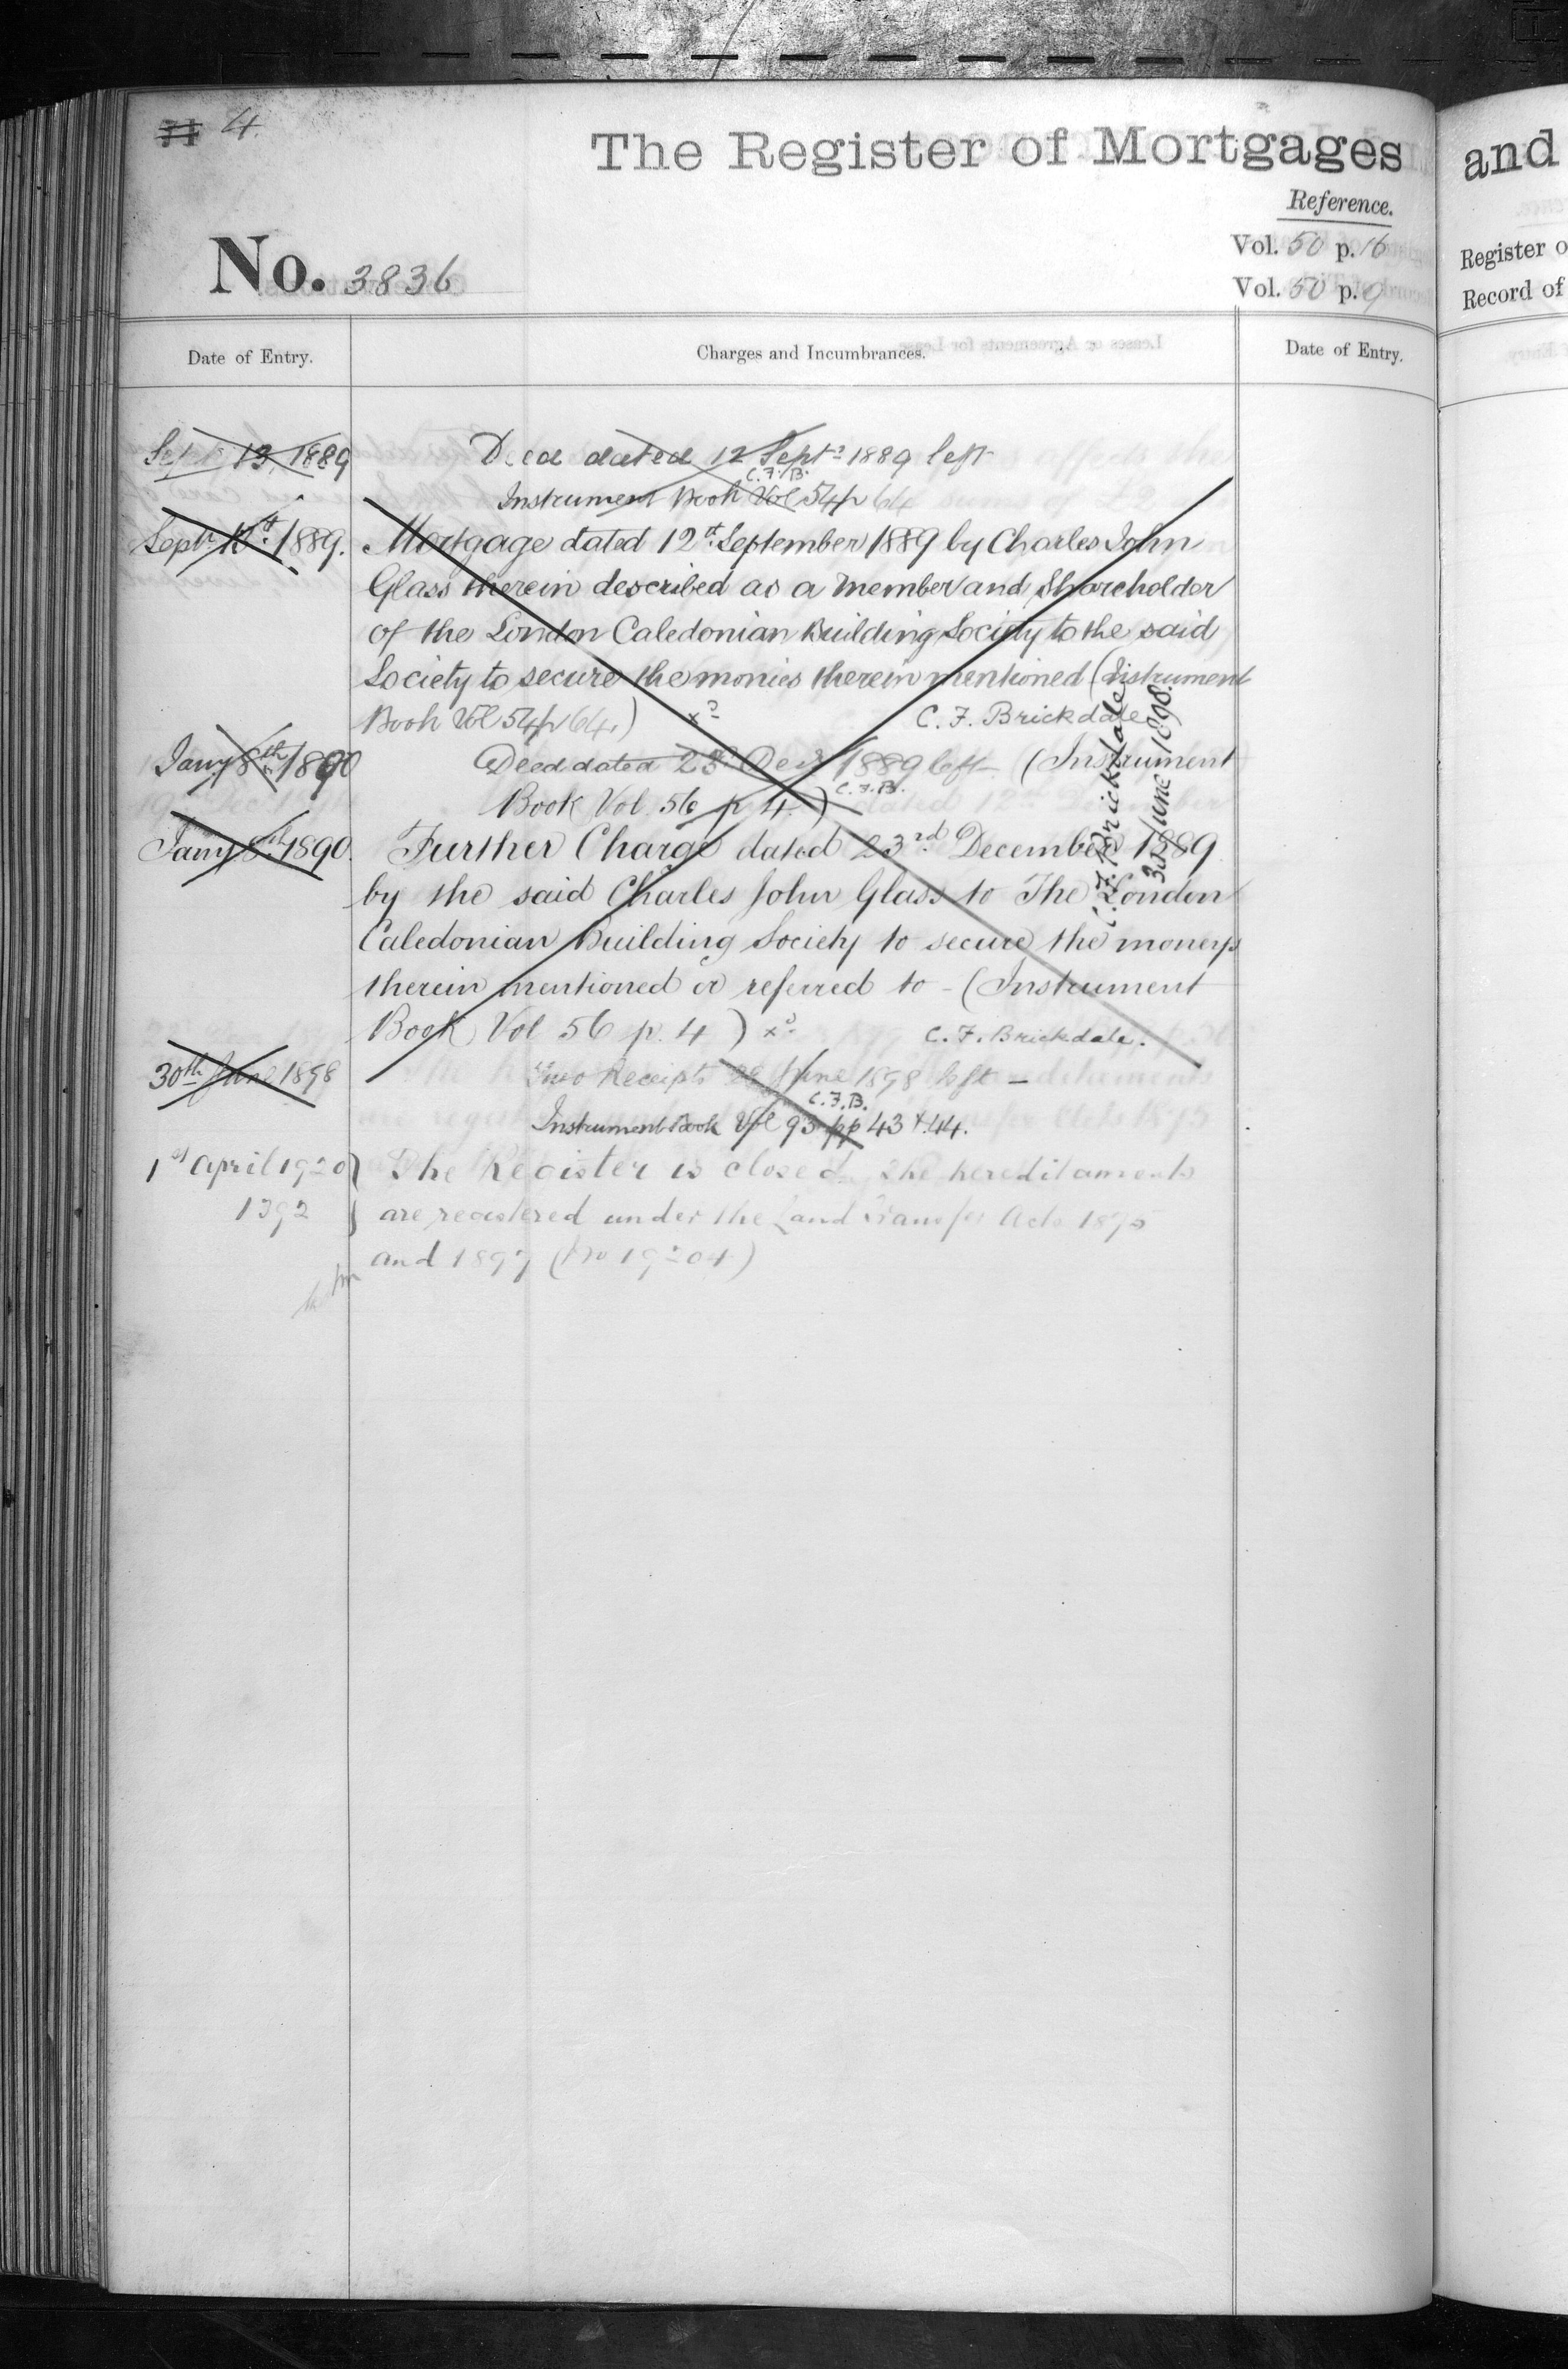 4.
The Register of Mortgages
and
Reference.
Vol. 50 p. 16
Register o
No. 3836
Vol. 50 p. 9
Record of
Date of Entry.
Charges and Incumbrances.
Date of Entry.
Sept 13, 1889
Deed dated 12 Sept 1889 left
C.F.B.
Instrument Book Vol 54 p 64
Sept 1889.
Mortgage dated 12th September 1889 by Charles John
Glass therein described as a Member and Shareholder
of the London Caledonian Building Society to the said
Society to secure the monies therein mentioned (Instrument
Book Vol 54 p 64.)
C. F. Brickdale
Jany 8th 1890
Deed dated 23 Decr 1889 left (Instrument
Book Vol. 56 p 4.)
C.F.B.
Jany 8th 1890.
Further Charge dated 23rd December 1889
by the said Charles John Glass to The London
Caledonian Building Society to secure the moneys
therein mentioned or referred to - (Instrument
Book Vol 56 p. 4)
C. F. Brickdale.
C. F. Brickdale
30 June 1898.
30th June 1898
Two Receipts June 1898 left -
C.F.B.
Instrument Book Vol 93 pp 43 & 44.
1st April 1920
The Register is closed, the hereditaments
1392
are registered under the Land Transfer Acts 1875
and 1897 (No 19204)